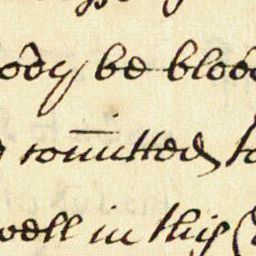 body be bloo
comitted to
well in this